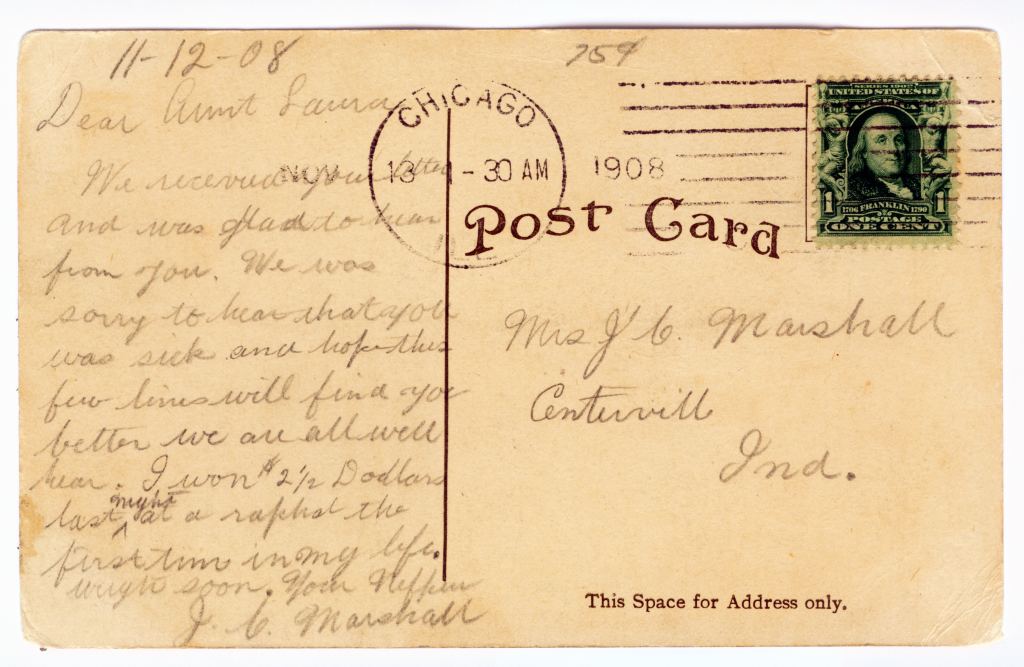 11-12-08
759
Dear Aunt Laura
We received your letter
and was glad to hear
from you. We was
sorry to hear that you
was sick and hope this
few lines will find you
better we are all well
hear. I won $2 1/2 Dodlars
last night at a
the
first time in my life.
wrigh soon. Your Neffew
J. C. Marshall
CHICAGO
NOV 13 1-30 AM 1908
SERIES 1902
UNITED STATES OF
AMERICA
1706 FRANKLIN 1790
1 POSTAGE 1
ONE CENT
Post Card
Mrs J C. Marshall
Centervill
Ind.
This Space for Address only.